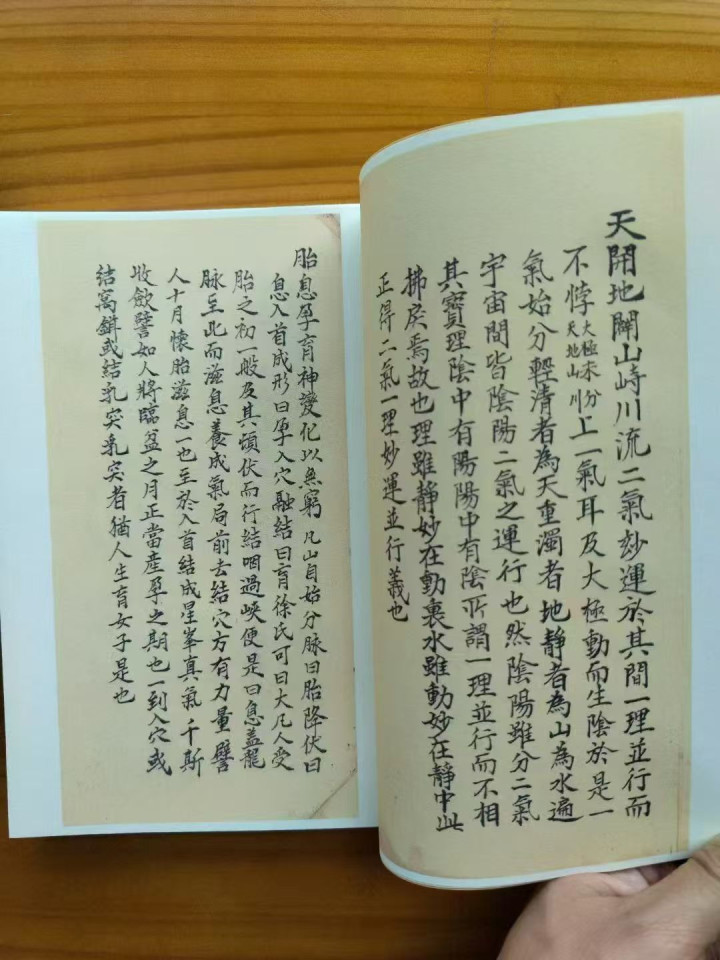 天開地闢山峙川流二氣玅運於其間一理並行而
不悖大極未分天地山川上一氣耳及大極動而生陰於是一
氣始分輕清者為天重濁者地静者為山為水遍
宇宙間皆陰陽二氣之運行也然陰陽雖分二氣
其寶理陰中有陽陽中有陰所謂一理並行而不相
拂戾焉故也理雖静妙在動裏水雖動妙在静中此
正得二氣一理妙運並行義也
胎息孕育神變化以無窮 凡山自始分脉曰胎降伏曰
息入首成形曰孕入穴融結曰育徐氏可曰大凡人受
胎之初一般及其頓伏而行結咽過峽便是曰息盖龍
脉至此而滋息養成氣局前去結穴方有力量譬
人十月懷胎滋息一也至於入首結成星峯真氣千斯
收斂譬如人將臨盆之月正當產孕之期也一到入穴或
結窩鉗或結乳突乳突者猶人生育女子是也